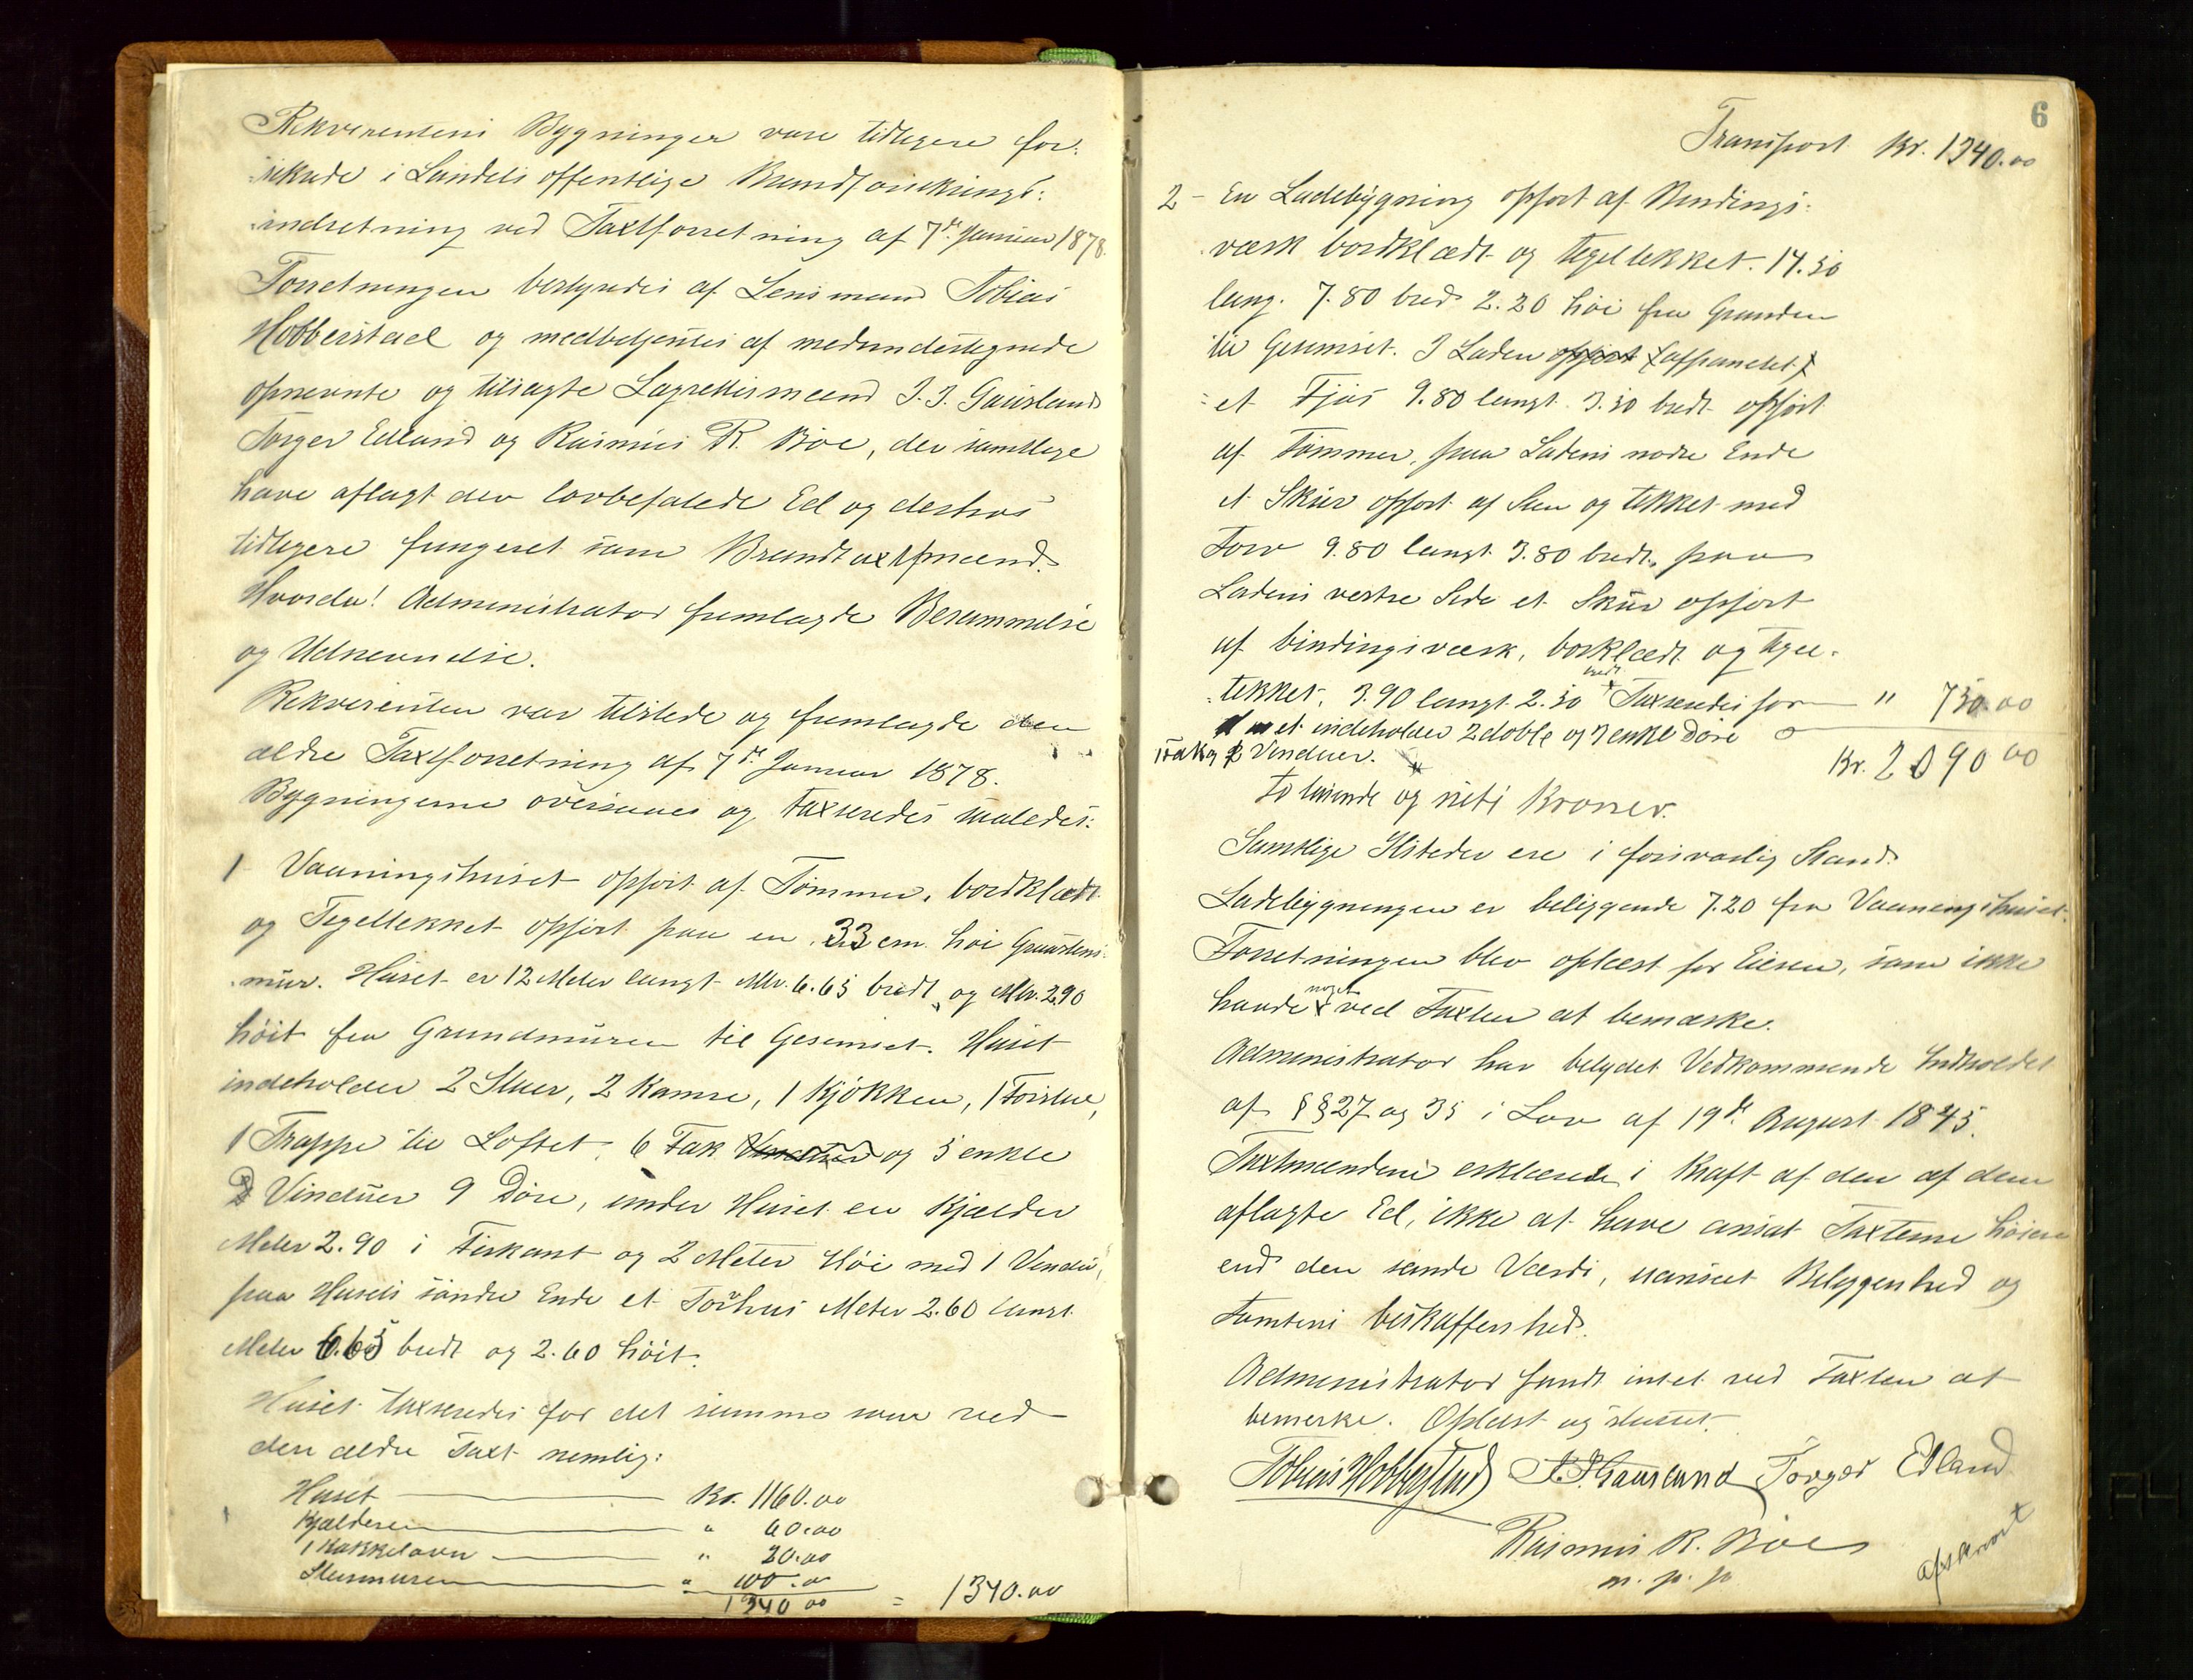 Rekvirentens Bygninger vare tidligere for-
sikrede i Landets offentlige Brandforsikrings-
indretning ved Taxtforretning af 7de Januar 1878.
Forretningen bestyredes af Lensmand Tobias
Hobberstad og medbetjentes af medundertegnede
opnævnte og tilsagte Lagrettesmænd J. J. Gausland
Torger Edland og Rasmus R. Böe, der samtlige
have aflagt den lovbefalede Ed og deshos
tidligere fungeret som Brandtaxtmænd.
Hvorda! Administrator fremlagde Berammelse
og Udnævnelse.
Rekvirenten var tilstede og fremlagde den
ældre Taxtforretning af 7de Januar 1878.
Bygningerne oversaaes og taxseredes saaledes:
1 Vaaningshuset opført af Tømmer, bordklædt
og Tegeltekket opført paa en 33 cm. høi Graastens-
mur. Huset er 12 Meter langt Mtr. 6.65 bredt og Mtr. 2.90
höit fra Grundmuren til Gesimset. Huset
indeholder 2 Stuer, 2 Kamre, 1 Kjøkken, 1 Forstue,
1 Trappe til Loftet, 6 Fak Vinduer og 5 enkle
Vinduer 9 Döre, under Huset en Kjælder
Meter 2.90 i Firkant og 2 Meter Höi med 1 Vindu,
paa Husets söndre Ende et Torvhus Meter 2.60 langt
Meter 6.65 bredt og 2.60 höit.
Huset taxseredes for det samme som ved
den ældre Taxt nemlig:
Huset Kr. 1160.00
Kjælderen " 60.00
1 Kakkelovn " 20.00
Stenmuren " 100.00
1340 00 = 1340.00
6
Transport Kr. 1340.00
2 - En Ladebygning opført af Bindings-
værk bordklædt og tegeltekket. 17.50
lang. 7.80 bred 2.20 höi fra Grunden
til Gesimset. I Laden opført (afpanelet)
et Fjøs 9.80 langt 3.50 bredt opført
af Tømmer, paa Ladens nodre Ende
et Skur opført af Sten og tekket med
Torv 9.80 langt 3.80 bredt, paa
Ladens vestre Side et Skur opført
af bindingsværk, bordklædt og tegel-
bredt
tekket. 3.90 langt 2.50 x Taxseredes for " 750.00
et indeholder 2 doble og 7 enkle Döre
Vinduer.
Kr. 2090 00
to tusende og niti Kroner.
Samtlige Ildsteder ere i forsvarlig Stand.
Ladebygningen er beliggende 7.20 fra Vaaningshuset.
Forretningen blev oplæst for Eieren, som ikke
noget
havde x ved Taxten at bemærke.
Administrator har betydet Vedkommende Indholdet
af §§ 27 og 35 i Lov af 19de August 1845.
Taxtmændene erklærede i Kraft af den af dem
aflagte Ed, ikke at have ansat Taxterne höiere
end den sande Værdi, uanset Beliggenhed og
Tomtens beskaffenhed.
Administrator fandt intet ved Taxten at
bemerke. Oplæst og sluttet.
Tobias Hobberstad J. J. Gausland Torger Edland
Rasmus R. Böe
m. p. p
afskrevet